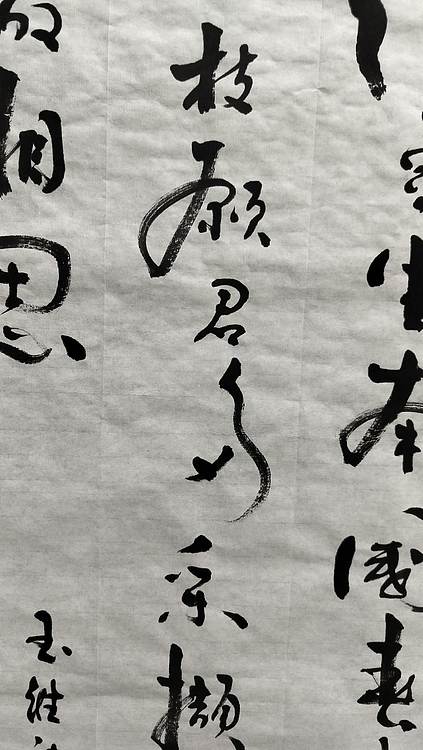 生南國春
枝願君多采擷
相思
王維